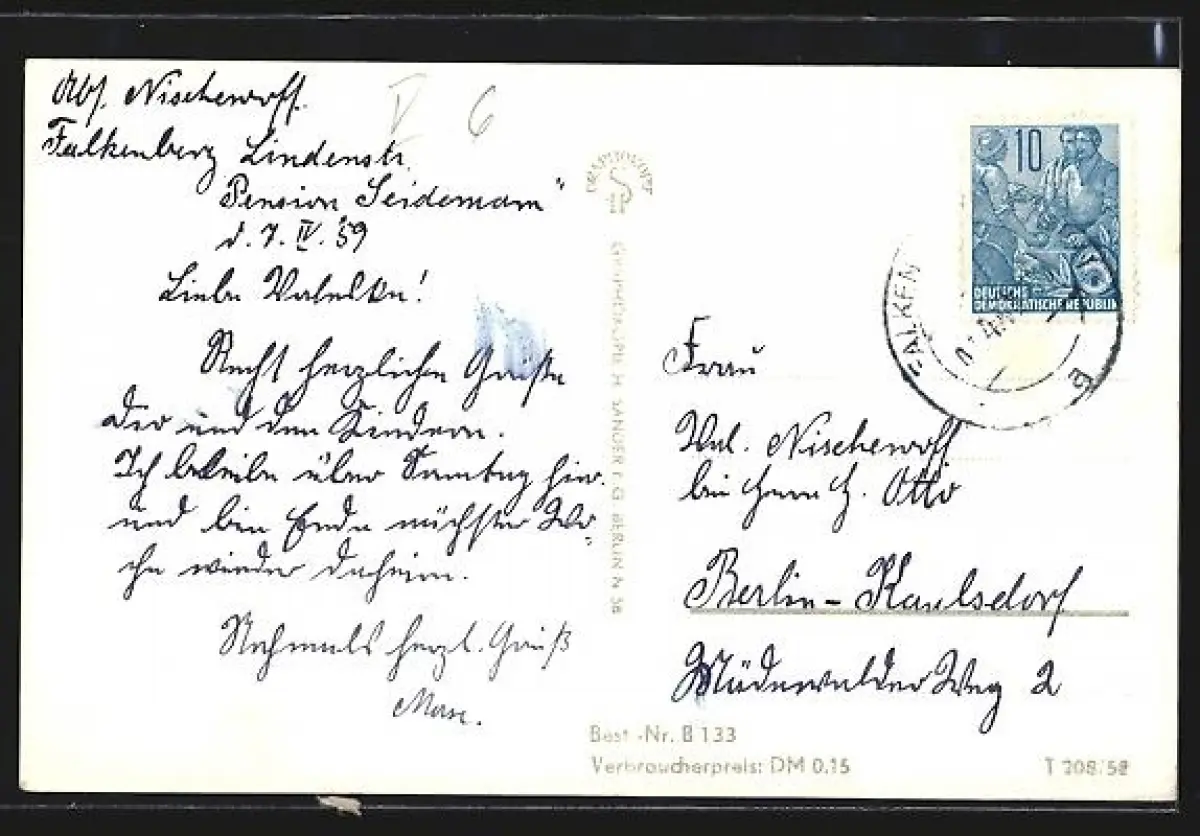 Abs. Nischewoff.
Falkenberg Lindenstr.
Pension Seidemann"
d. 7. IV. 59
Liebe Valeska!
Recht herzliche Grüße
Dir und den Kindern.
Ich bleibe über Sonntag hier
und bin Ende nächster Wo-
che wieder daheim.
Nochmals herzl. Gruß
V 6
GRAPHOKOPIE H. SANDER K.G. BERLIN N 58
10
DEUTSCHE
DEMOKRATISCHE REPUBLIK
FALKEN
Frau
Val. Nischewoff
bei Herrn H. Otto
Berlin-Kaulsdorf
Weg 2
Best.-Nr. B 133
Verbraucherpreis: DM 0,15
T 208/58